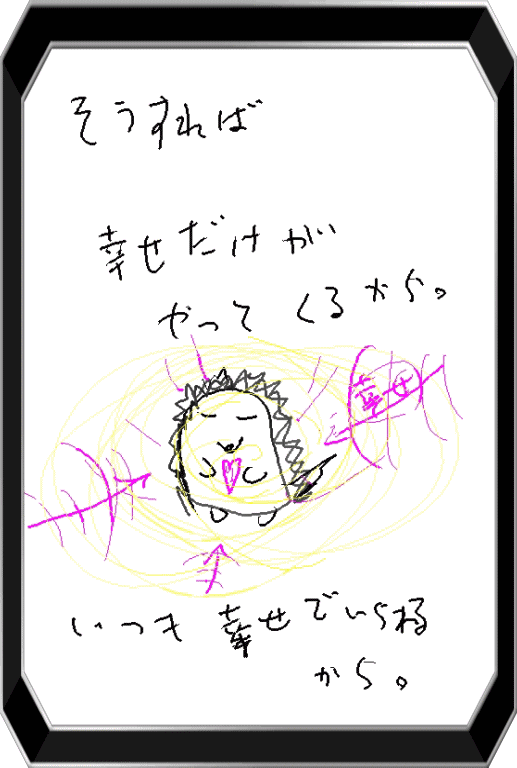 そうすれば
幸せだけが
やってくるから。
幸せ
いつも幸せでいられる
から。